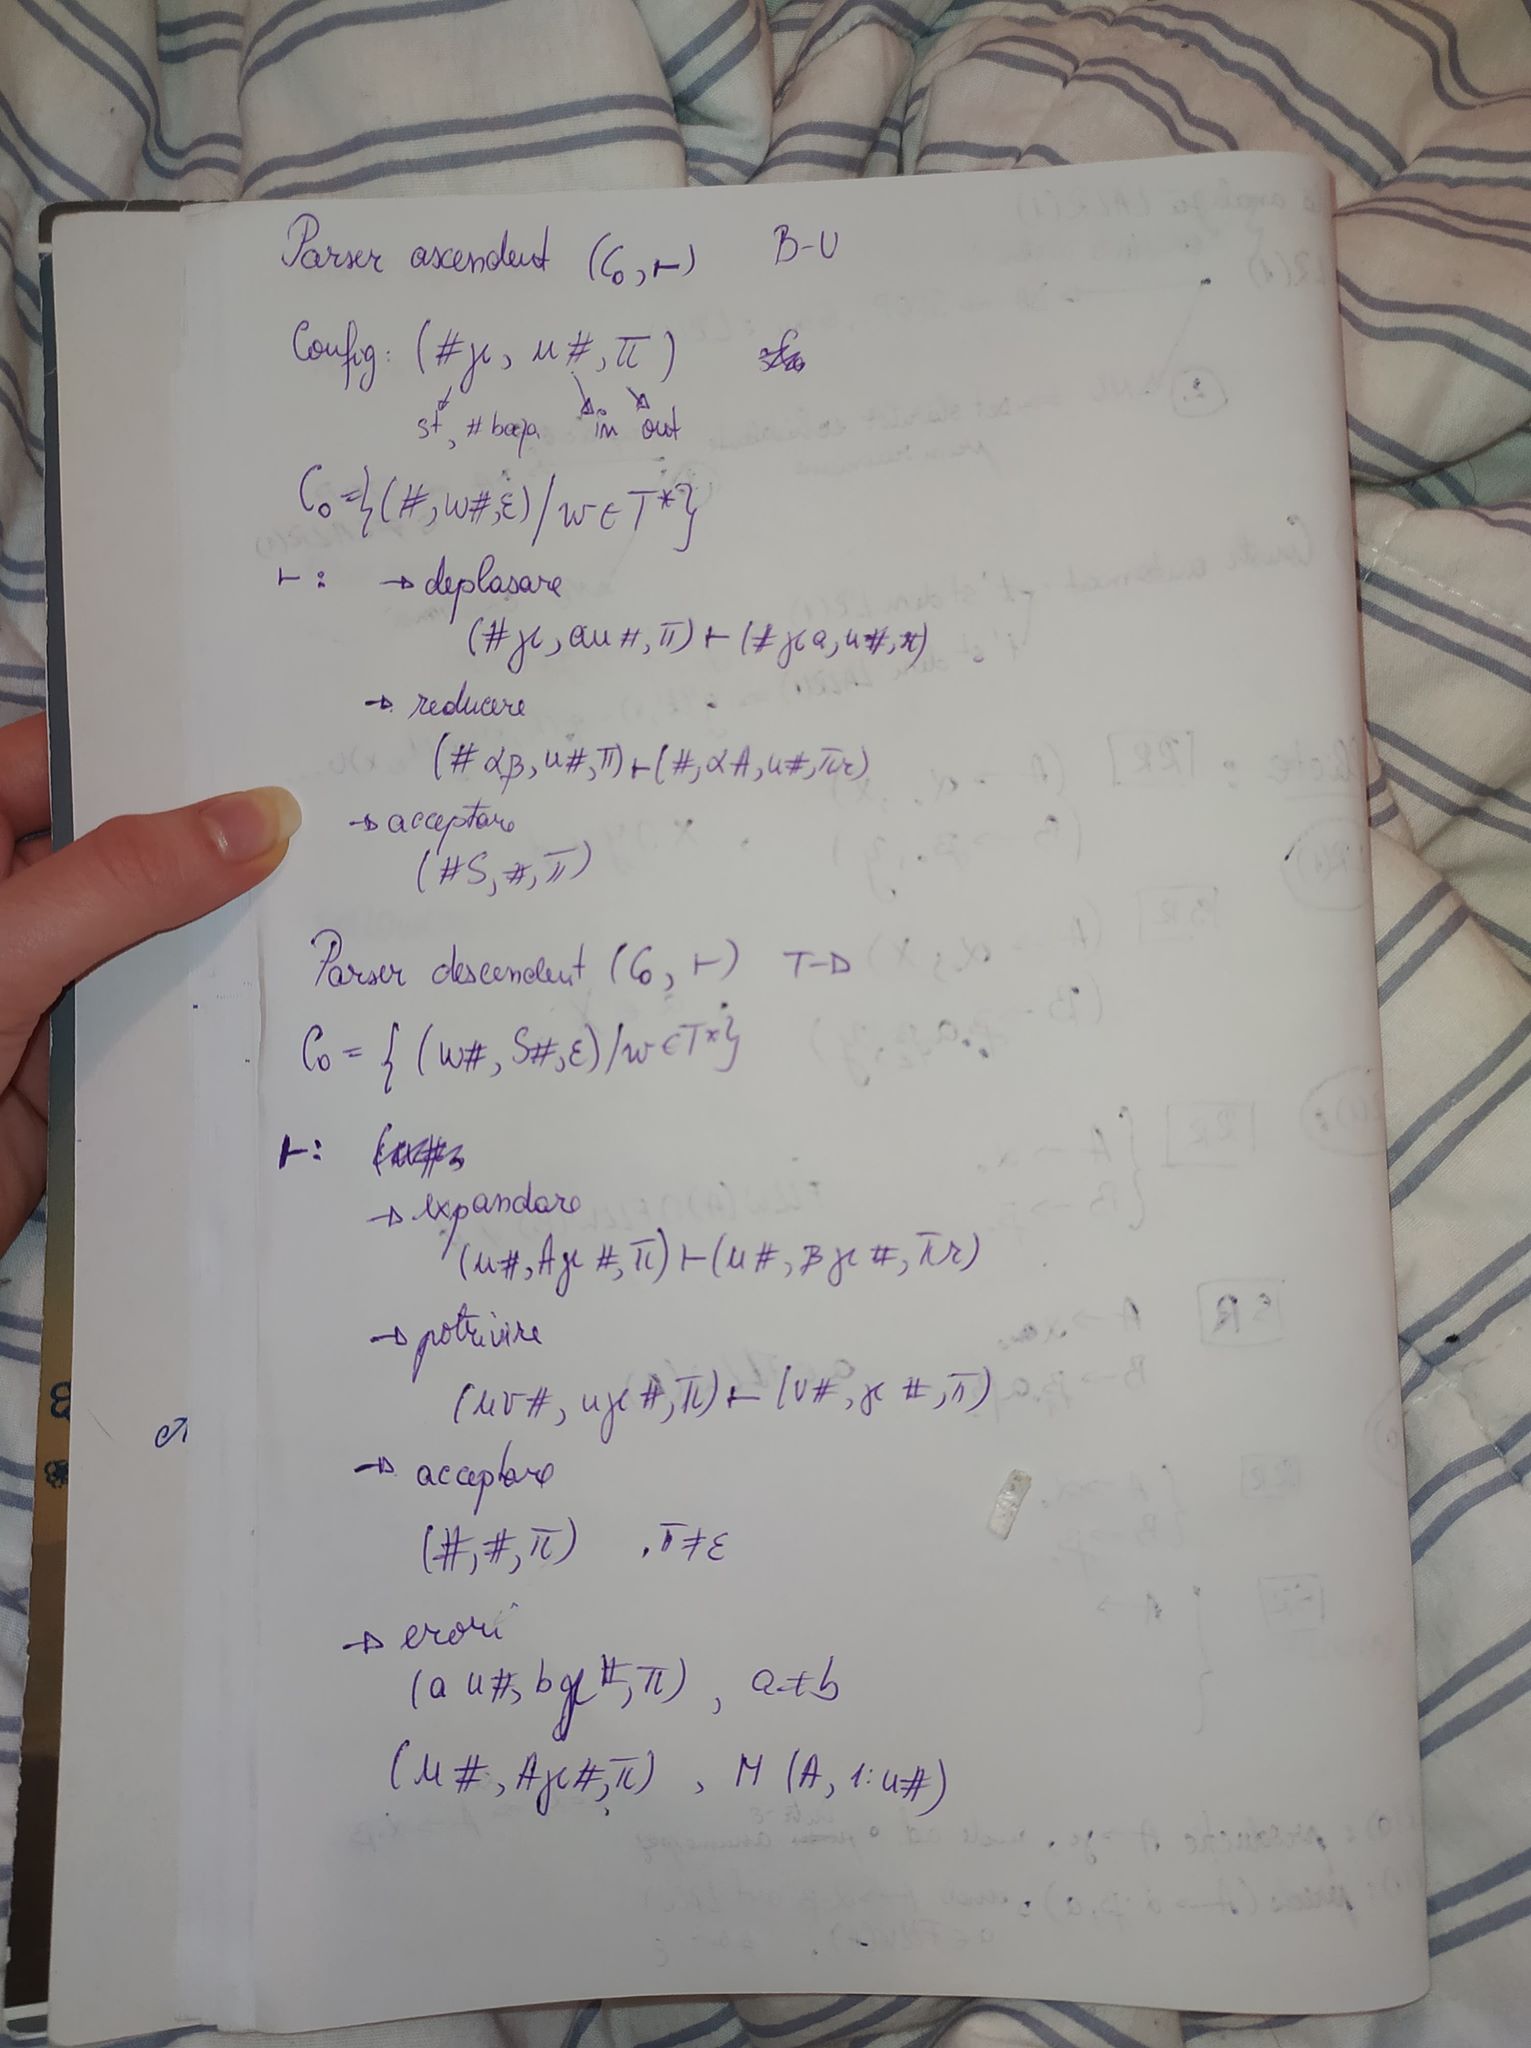 Parser ascendent (C₀, ⊢) B-U
Config: (#γ, u#, π)
st, # baza in out
C₀ = {(#, w#, ε) / w ∈ T*}
⊢: → deplasare
(#γ, au#, π) ⊢ (#γa, u#, π)
→ reducere
(#αβ, u#, π) ⊢ (#, αA, u#, πr)
→ acceptare
(#S, #, π)
Parser descendent (C₀, ⊢) T-D
C₀ = {(w#, S#, ε) / w ∈ T*}
⊢:
→ expandare
(u#, Aγ#, π) ⊢ (u#, βγ#, πr)
→ potrivire
(uv#, uγ#, π) ⊢ (v#, γ#, π)
→ acceptare
(#, #, π) , π ≠ ε
→ erori
(au#, bγ#, π) , a ≠ b
(u#, Aγ#, π) , M (A, 1:u#)